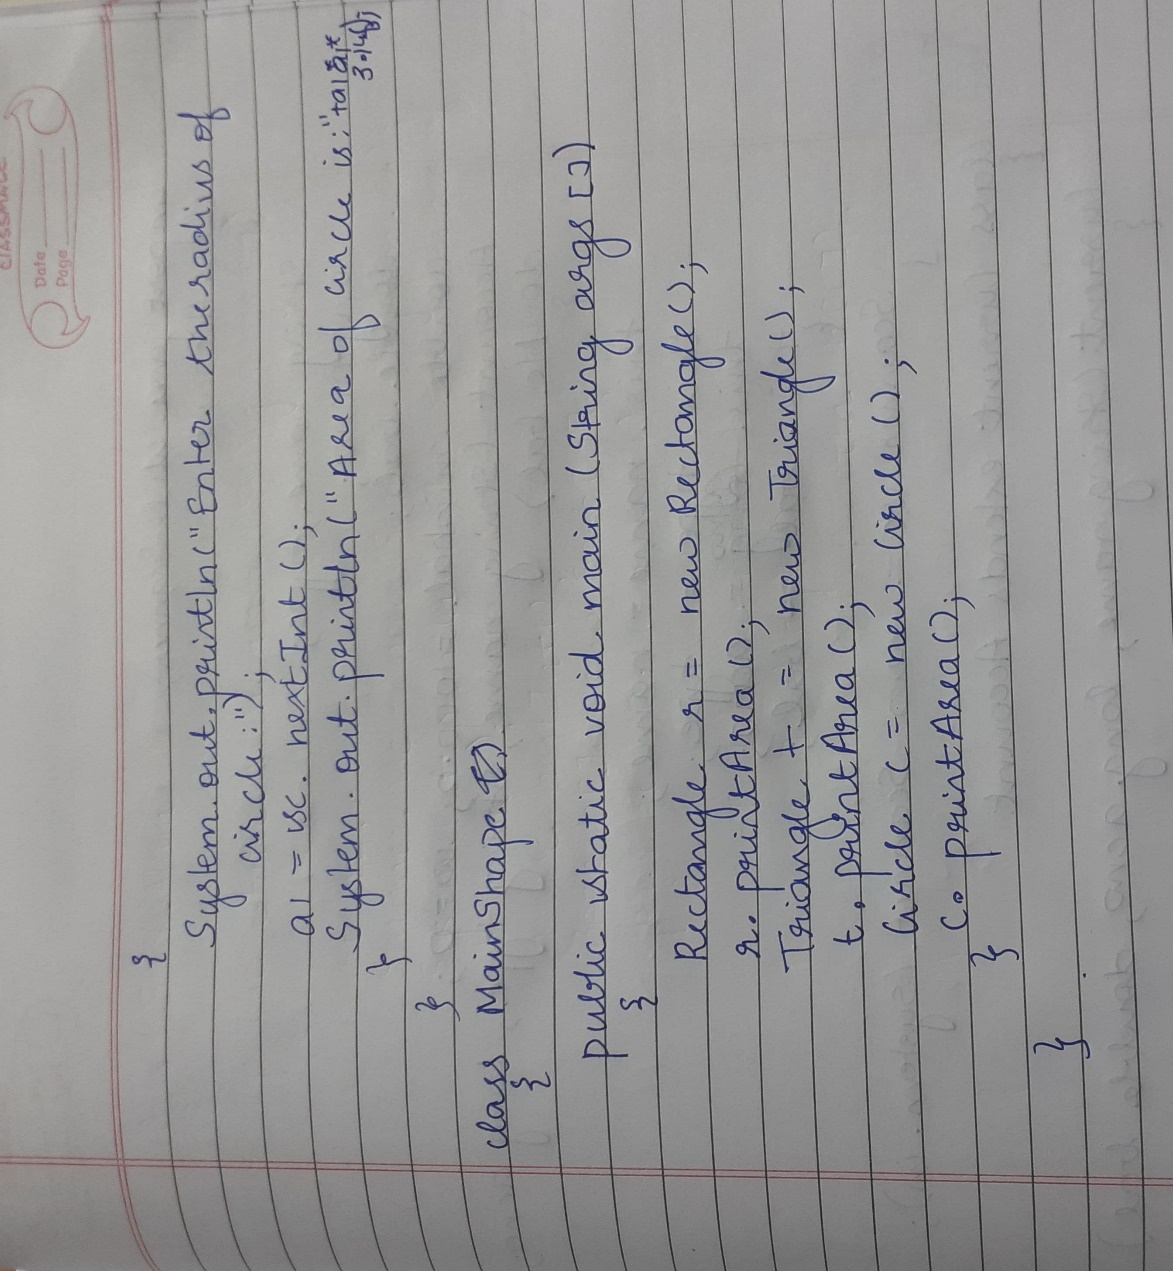 CLASSMATE
Date
Page
{
System.out.println("Enter the radius of
circle:");
a1 = sc.nextInt();
System.out.println("Area of circle is:"+a1*a1*
3.14);
}
}
class MainShape
{
public static void main (String args [])
{
Rectangle r = new Rectangle();
r.printArea();
Triangle t = new Triangle();
t.printArea();
Circle c = new Circle();
c.printArea();
}
}